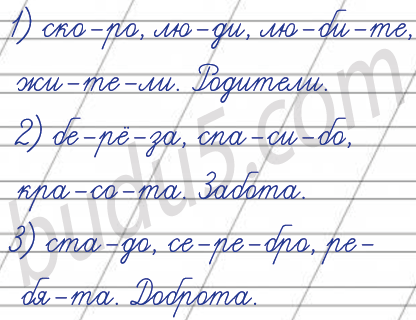 1) ско-ро, лю-ди, лю-би-те,
жи-те-ли. Родители.
2) бе-рё-за, спа-си-бо,
кра-со-та. Забота.
3) ста-до, се-ре-бро, ре-
бя-та. Доброта.
budu5.com